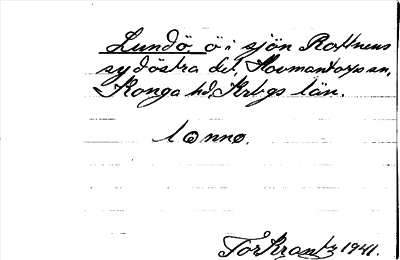 Lundö, ö i sjön Rottnens
sydöstra del, Hovmantorps sn,
Konga hd, Krbgs län.
lønnø.
Tor Krantz 1941.